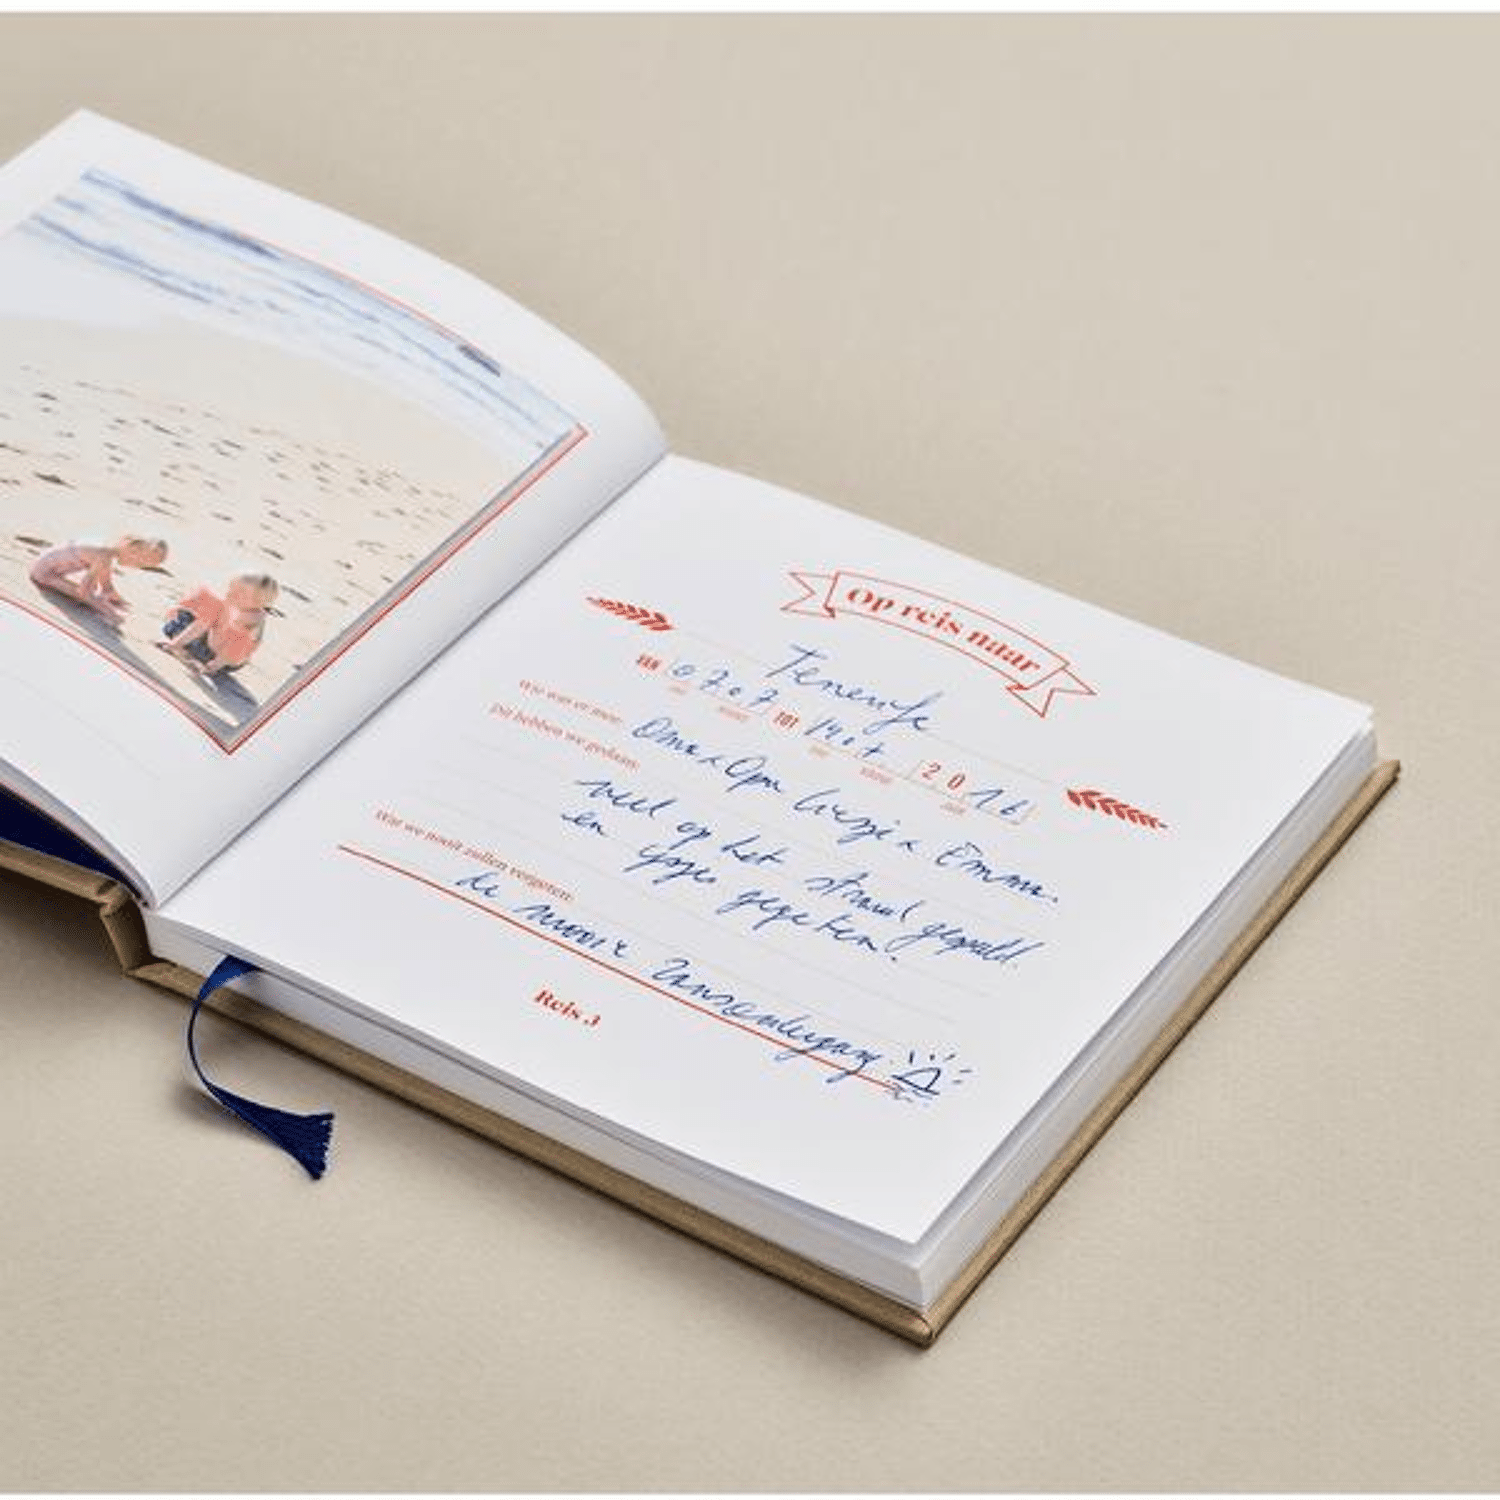 Op reis naar
Tenerife
VAN 07 07 TOT 14 07 2016
Wie was er mee: Oma & Opa & Emma.
Dit hebben we gedaan:
veel op het strand gespeeld.
en ijsjes gegeten.
Wat we nooit zullen vergeten:
de mooie zonsondergang
Reis 3